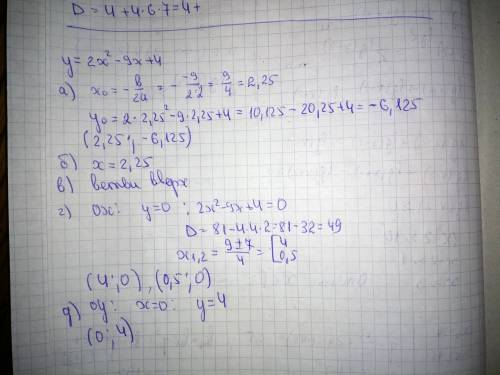 D = 4 + 4·6·7 = 4 +
y = 2x² - 9x + 4
а) x₀ = - b/2a = - -9/2·2 = 9/4 = 2,25
y₀ = 2 · 2,25² - 9 · 2,25 + 4 = 10,125 - 20,25 + 4 = - 6,125
(2,25 ; -6,125)
б) x = 2,25
в) ветви вверх
г) ox: y=0 : 2x² - 9x + 4 = 0
D = 81 - 4·4·2 = 81 - 32 = 49
x₁,₂ = 9±7/4 = [4
0,5
(4 ; 0), (0,5 ; 0)
д) oy: x=0: y = 4
(0 ; 4)